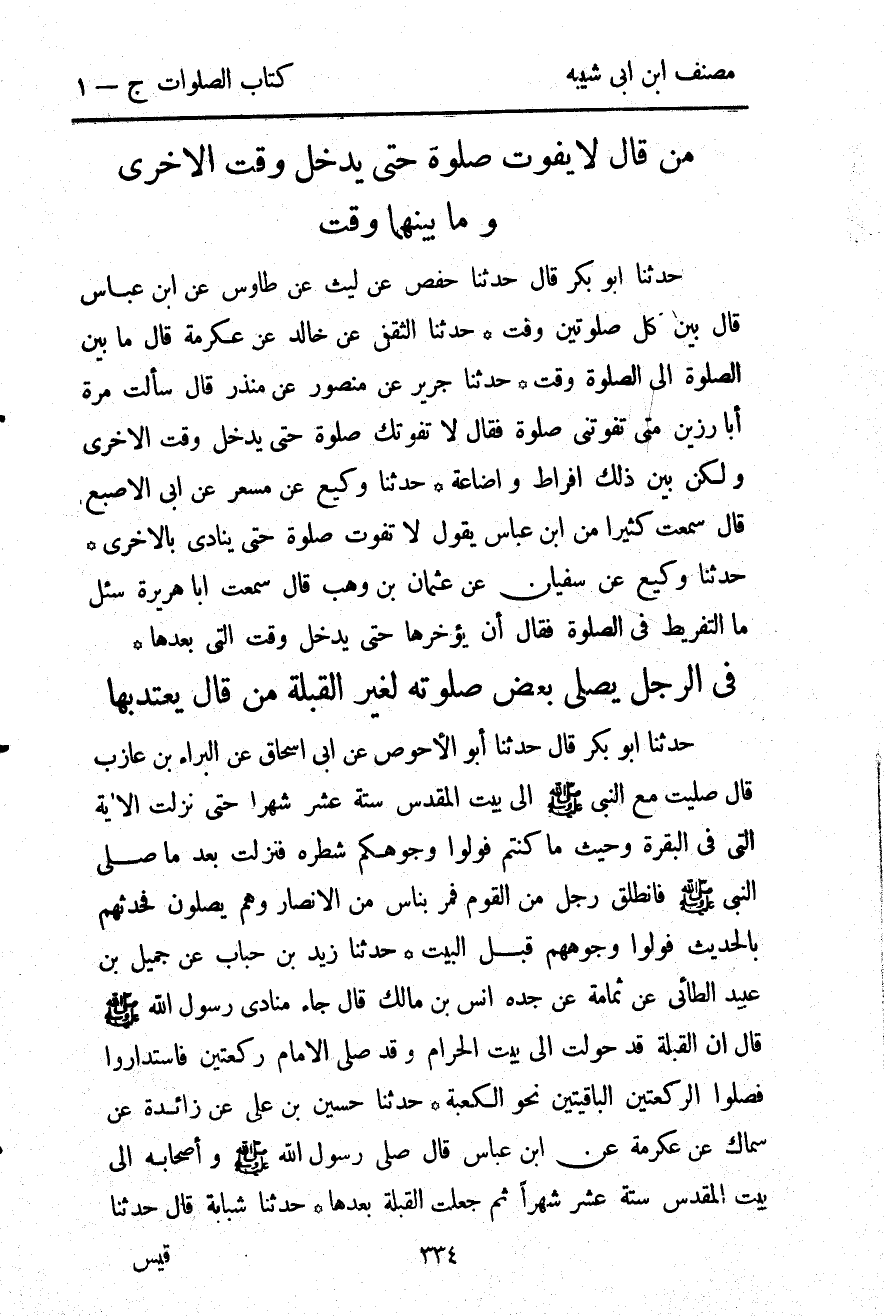 مصنف ابن ابى شيبه
كتاب الصلوات ج — ١
من قال لا يفوت صلوة حتى يدخل وقت الاخرى
و ما بينهما وقت
حدثنا ابو بكر قال حدثنا حفص عن ليث عن طاوس عن ابن عباس
قال بين كل صلوتين وقت * حدثنا الثقفى عن خالد عن عكرمة قال ما بين
الصلوة الى الصلوة وقت * حدثنا جرير عن منصور عن منذر قال سألت مرة
أبا رزين متى تفوتنى صلوة فقال لا تفوتك صلوة حتى يدخل وقت الاخرى
و لكن بين ذلك افراط و اضاعة * حدثنا وكيع عن مسعر عن ابى الاصبع
قال سمعت كثيرا من ابن عباس يقول لا تفوت صلوة حتى ينادى بالاخرى *
حدثنا وكيع عن سفيان عن عثمان بن وهب قال سمعت ابا هريرة سئل
ما التفريط فى الصلوة فقال أن يؤخرها حتى يدخل وقت التى بعدها *
فى الرجل يصلى بعض صلوته لغير القبلة من قال يعتدبها
حدثنا ابو بكر قال حدثنا أبو الأحوص عن ابى اسحاق عن البراء بن عازب
قال صليت مع النبى ﷺ الى بيت المقدس ستة عشر شهرا حتى نزلت الآية
التى فى البقرة وحيث ما كنتم فولوا وجوهكم شطره فنزلت بعد ما صلى
النبى ﷺ فانطلق رجل من القوم فمر بناس من الانصار وهم يصلون فحدثهم
بالحديث فولوا وجوههم قبل البيت * حدثنا زيد بن حباب عن جميل بن
عبيد الطائى عن ثمامة عن جده انس بن مالك قال جاء منادى رسول الله ﷺ
قال ان القبلة قد حولت الى بيت الحرام و قد صلى الامام ركعتين فاستداروا
فصلوا الركعتين الباقيتين نحو الكعبة * حدثنا حسين بن على عن زائدة عن
سماك عن عكرمة عن ابن عباس قال صلى رسول الله ﷺ و أصحابه الى
بيت المقدس ستة عشر شهراً ثم جعلت القبلة بعدها * حدثنا شبابة قال حدثنا
٣٣٤
قيس